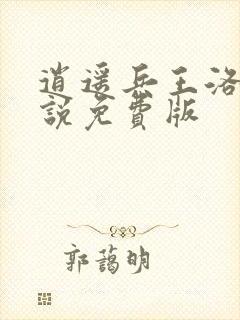 逍遥兵王洛
説免費版
郭蔼明